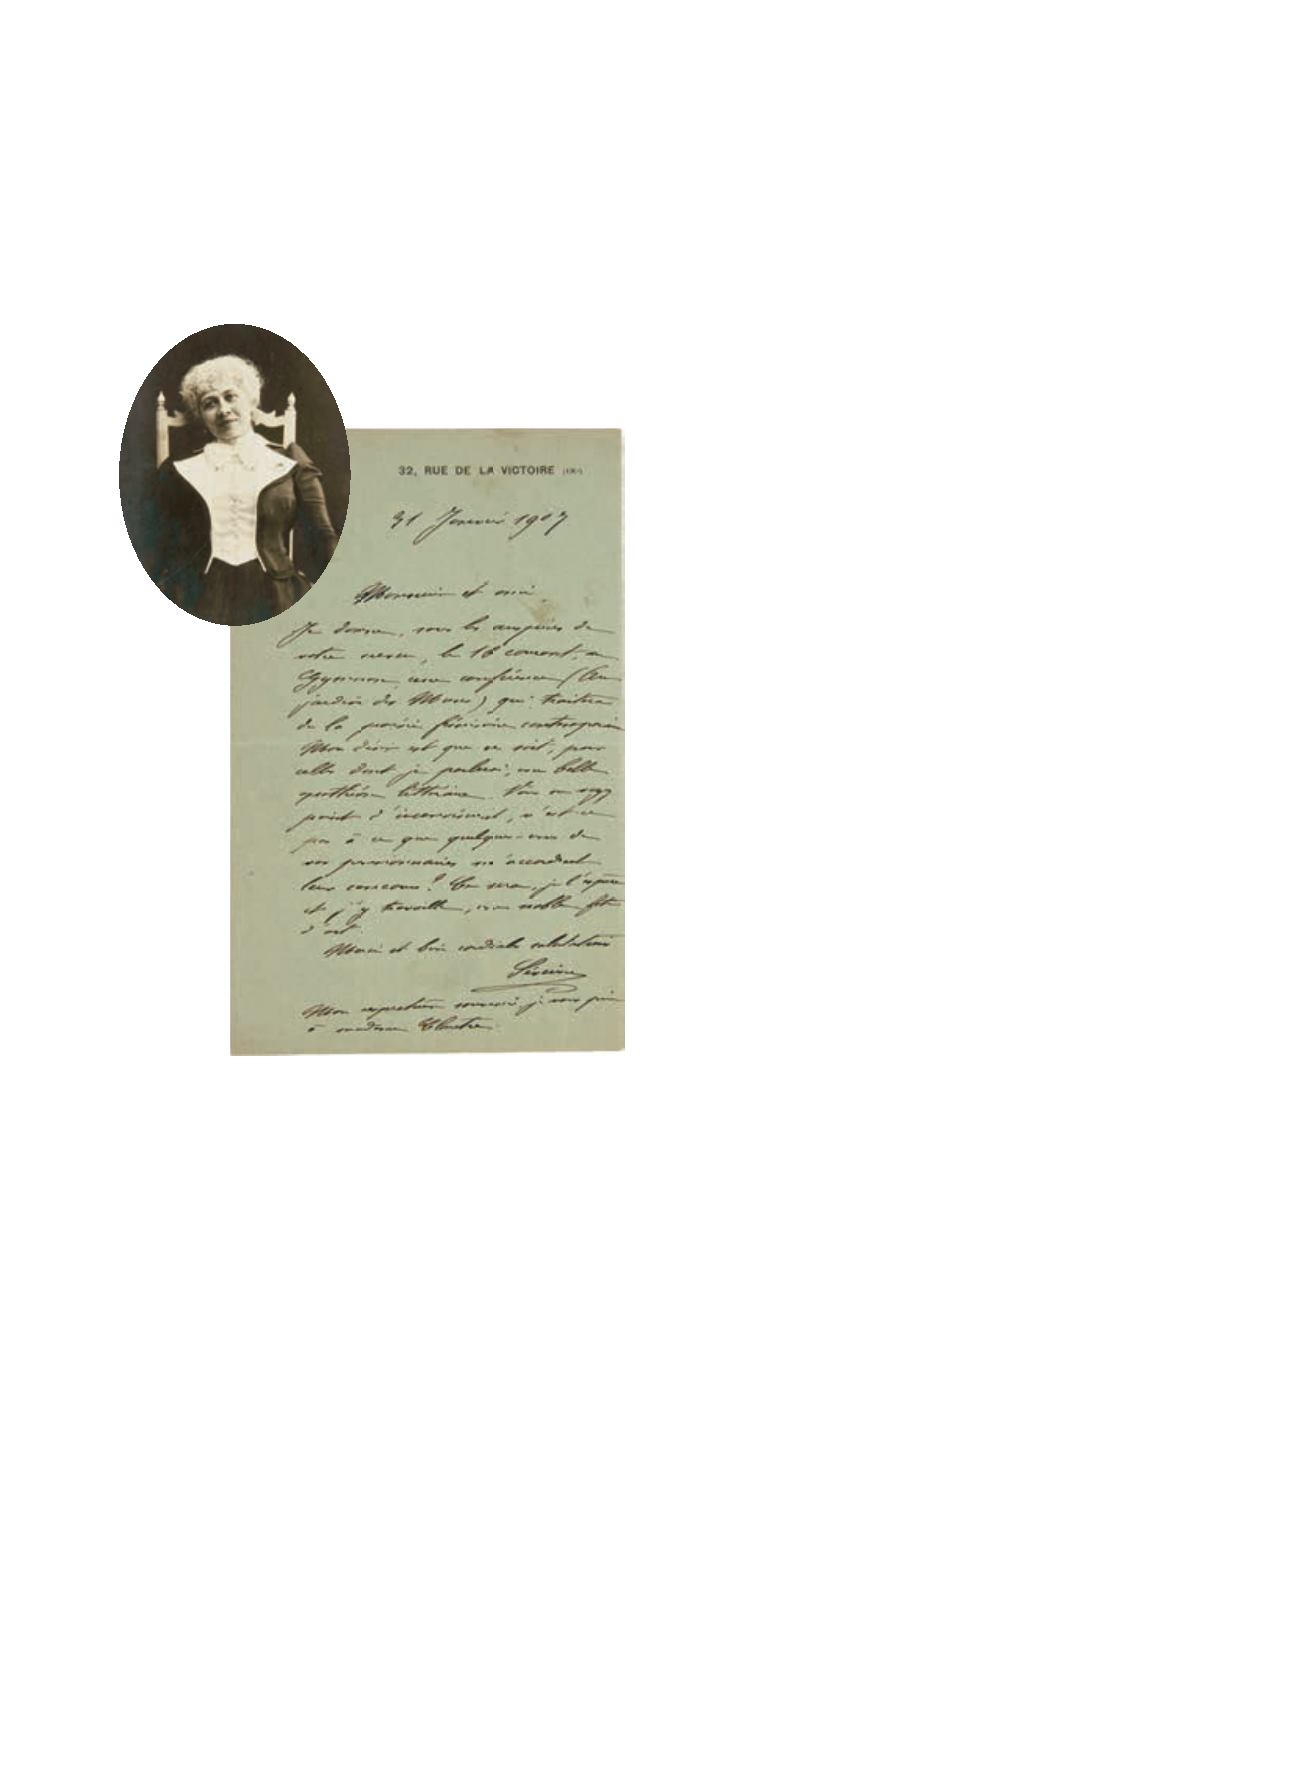 32, RUE DE LA VICTOIRE (IXe)
31 Janvier 1907
Monsieur et ami,
Je donne, sous les auspices de
votre neveu, le 16 courant, au
Gymnase, une conférence (Au
jardin des Muses) qui traitera
de la poésie féminine contemporaine
Mon désir est que ce soit, pour
celles dont je parlerai, une belle
apothéose littéraire. Vous ne voyez
point d'inconvénient, n'est-ce
pas à ce que quelques-unes de
vos pensionnaires m'accordent
leur concours? Ce sera, je l'espère
et j'y travaille, une noble fête
d'art.
Merci et bien cordiales salutations
Séverine
Mon souvenir, je vous prie
à madame Claretie.